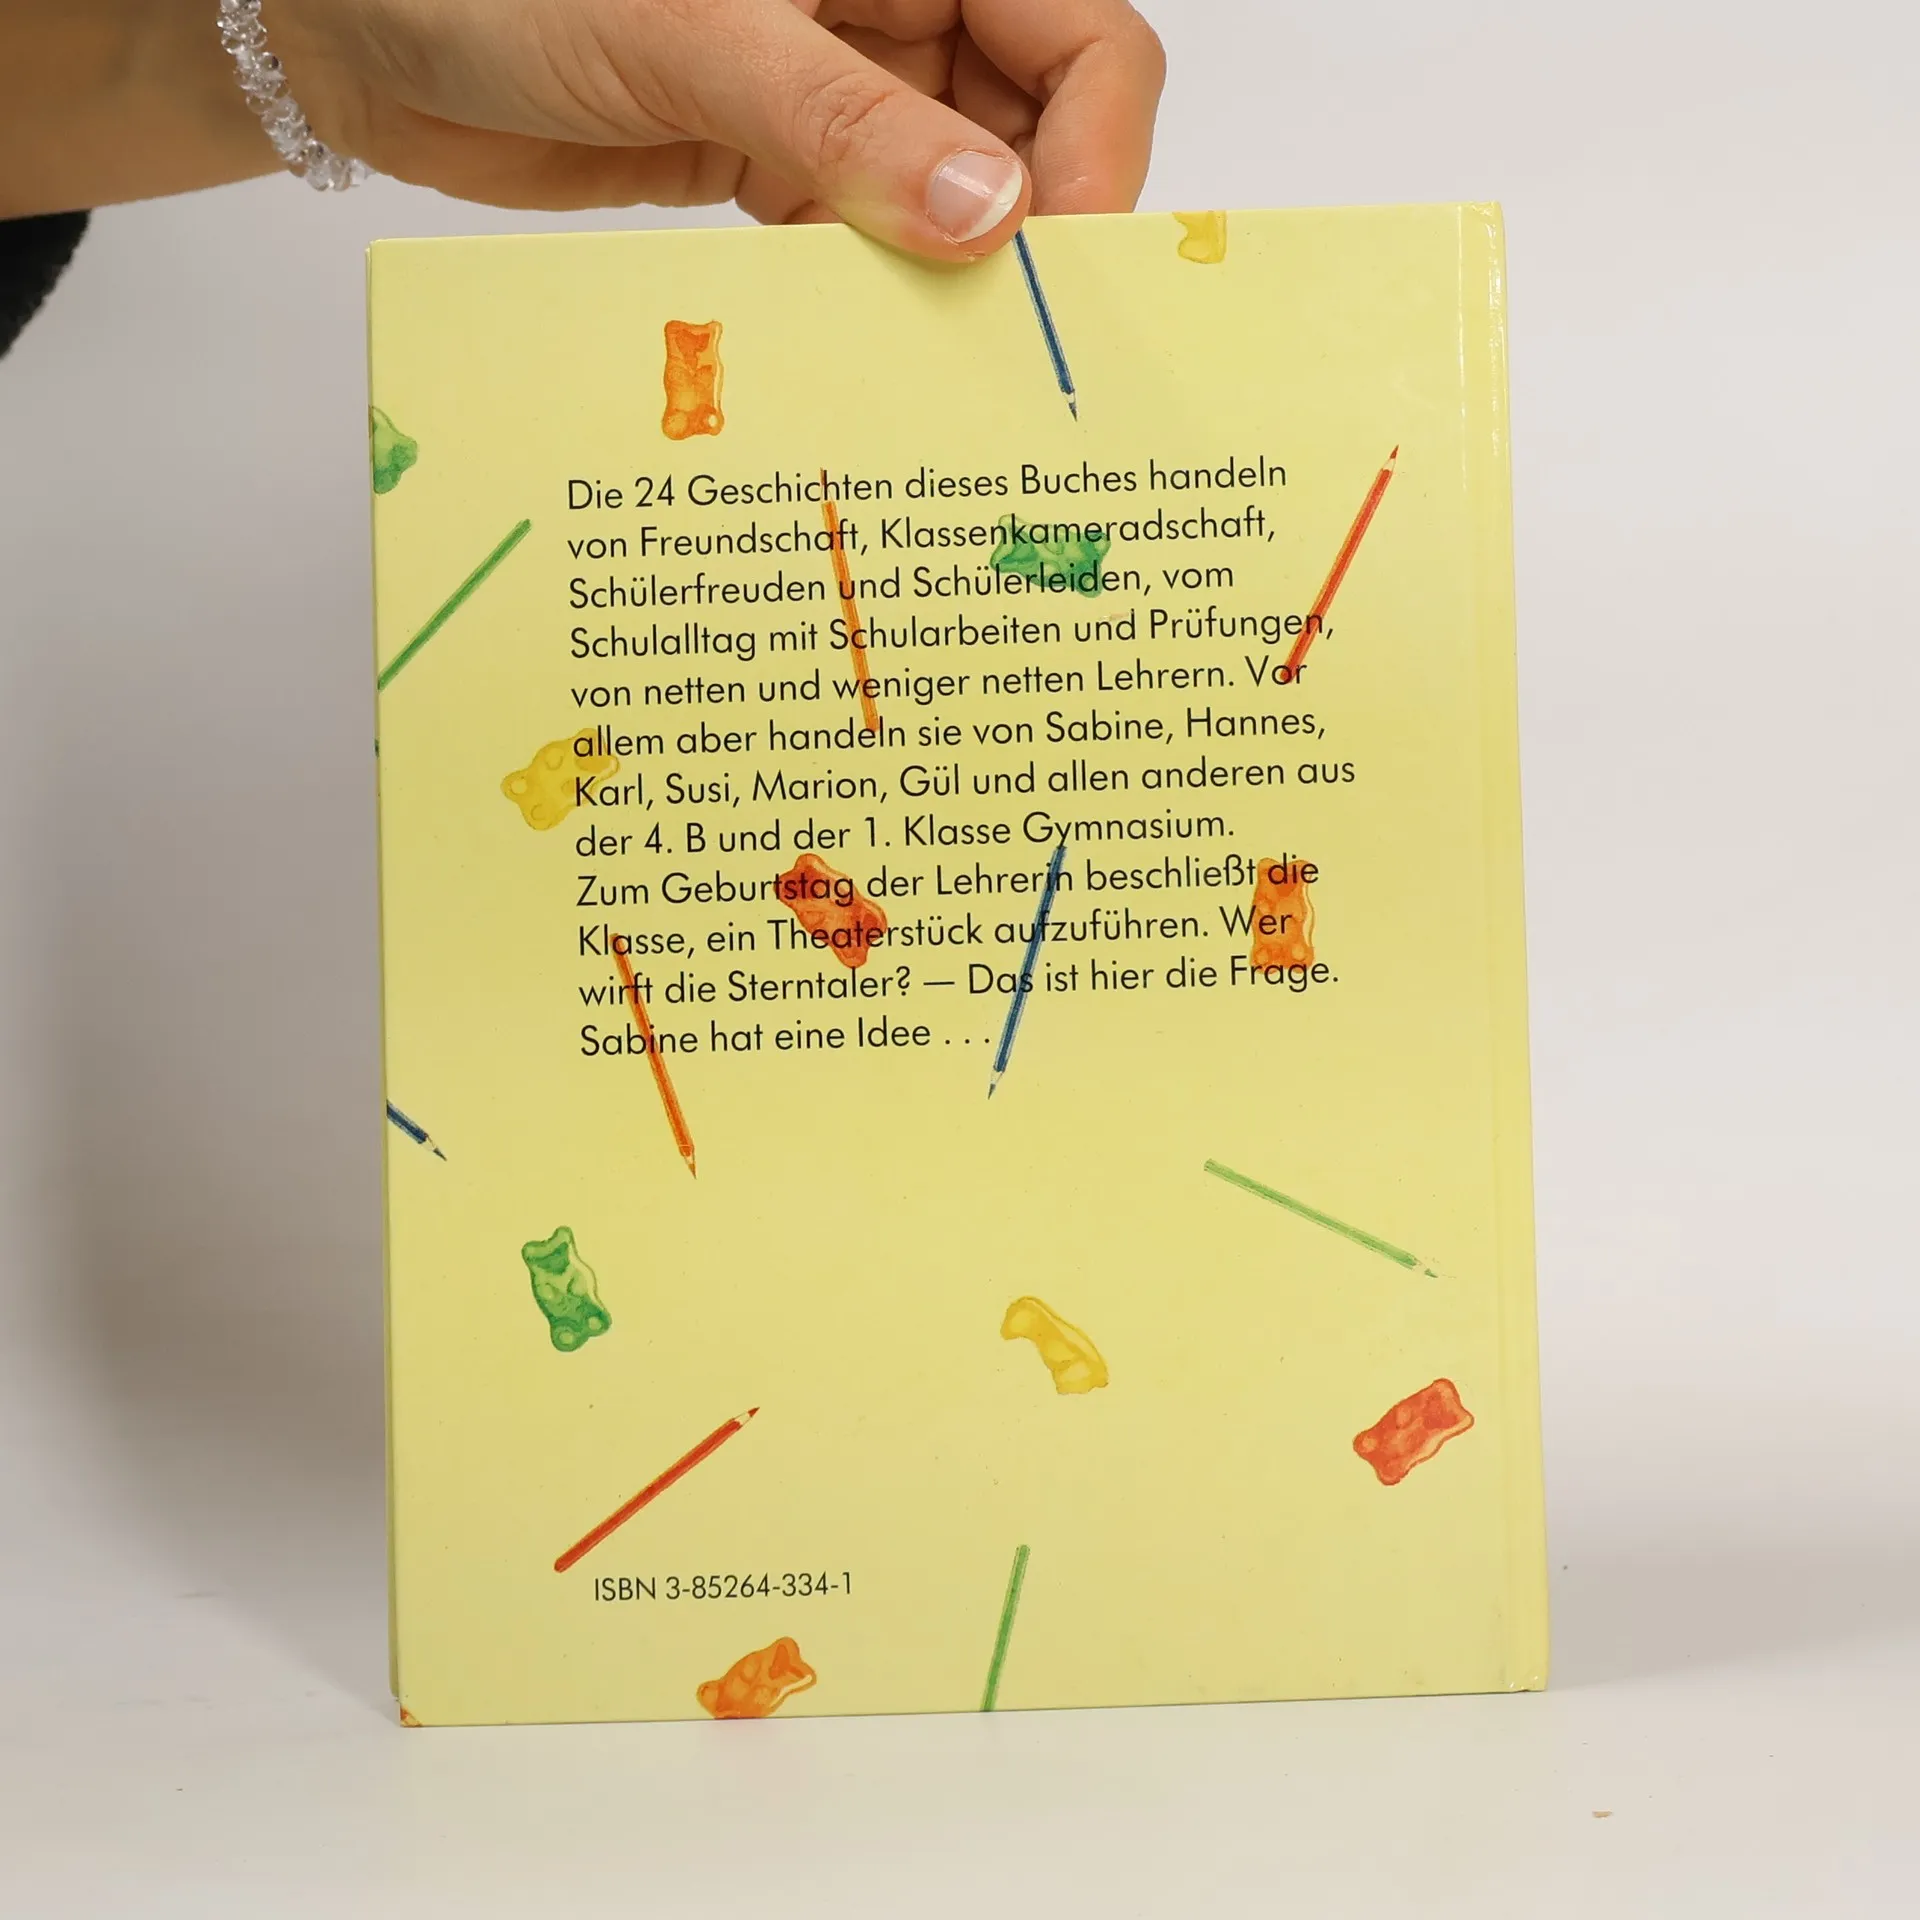 Die 24 Geschichten dieses Buches handeln
von Freundschaft, Klassenkameradschaft,
Schülerfreuden und Schülerleiden, vom
Schulalltag mit Schularbeiten und Prüfungen,
von netten und weniger netten Lehrern. Vor
allem aber handeln sie von Sabine, Hannes,
Karl, Susi, Marion, Gül und allen anderen aus
der 4. B und der 1. Klasse Gymnasium.
Zum Geburtstag der Lehrerin beschließt die
Klasse, ein Theaterstück aufzuführen. Wer
wirft die Sterntaler? — Das ist hier die Frage.
Sabine hat eine Idee . . .
ISBN 3-85264-334-1